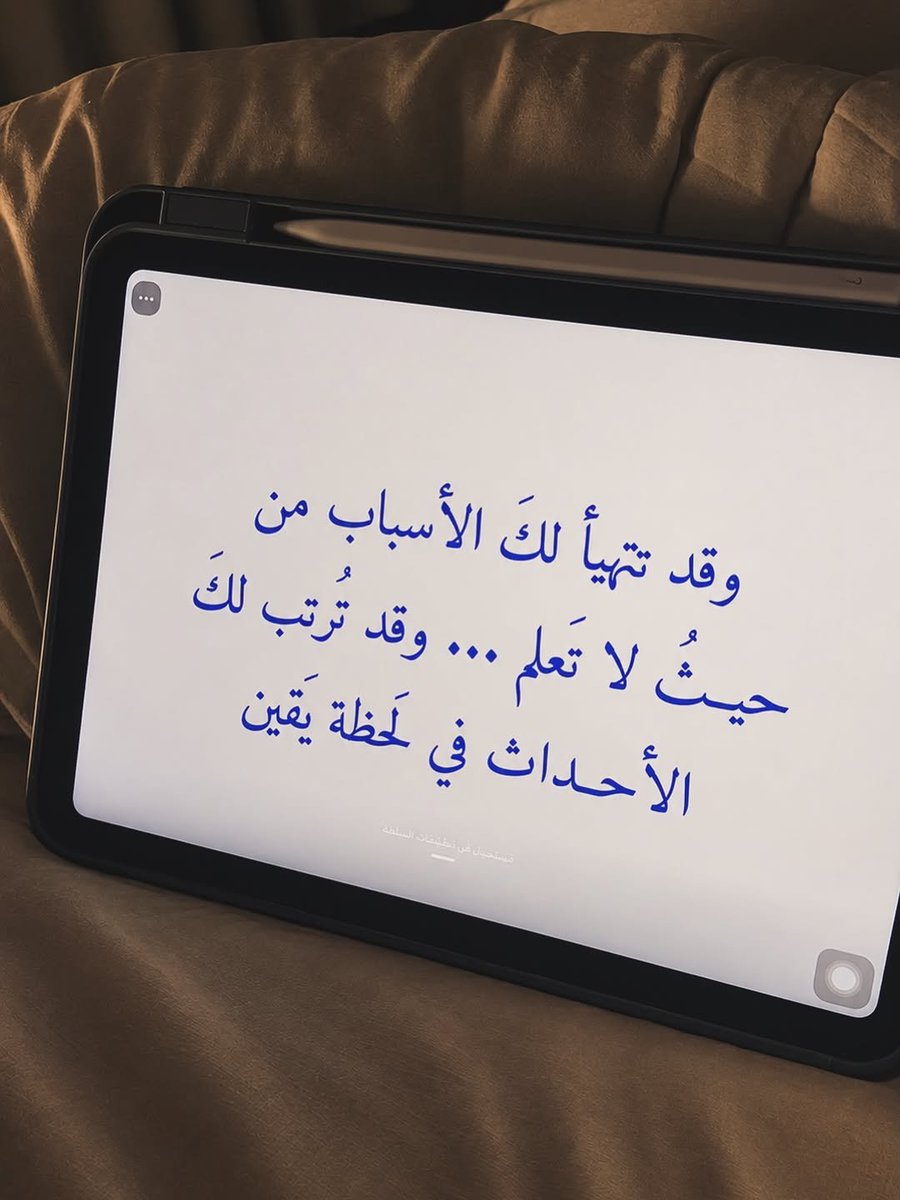 وقد تتهيأ لكَ الأسباب من
حيـثُ لا تَعلم ... وقد تُرتب لكَ
الأحـداث في لَحظة يَقين